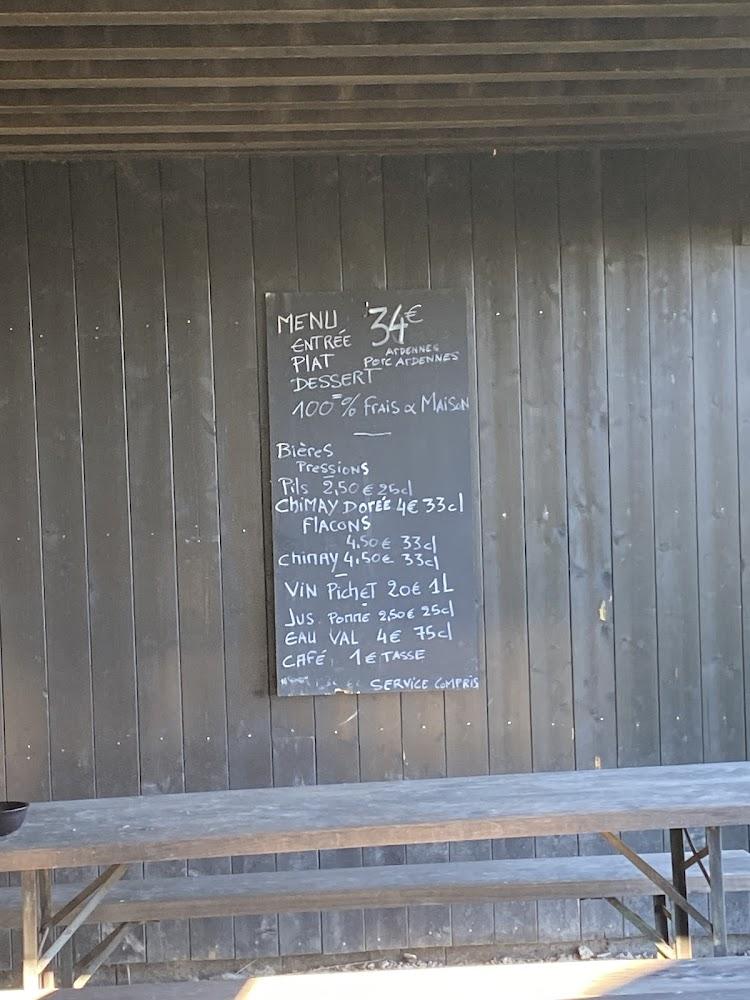 MENU 34€
ENTRÉE
ARDENNES
PLAT PORC ARDENNES
DESSERT
100% FRAIS & MAISON
BièreS
PressionS
Pils 2,50€ 25cl
CHiMAY DORÉE 4€ 33cl
FLACONS
4.50€ 33cl
CHiMAY 4.50€ 33cl
ViN PicHeT 20€ 1L
JUS POMME 2,50€ 25cl
EAU VAL 4€ 75cl
CAFÉ 1€ TASSE
SERVICE COMPRIS